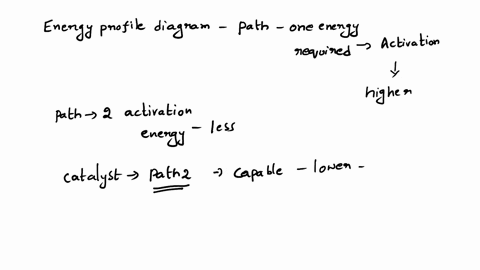 Energy profile diagram - Path - one energy
required → Activation
↓
higher
Path → 2 activation
energy - less
catalyst → Path 2 → capable - lower -